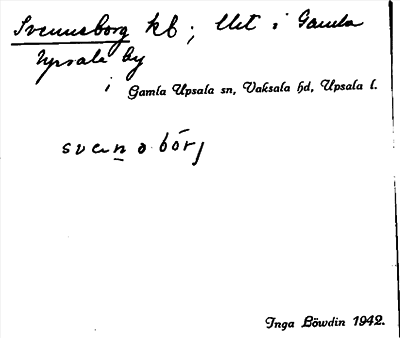 Svennsborg kb; lht i Gamla
Upsala by
i Gamla Upsala sn, Vaksala hd, Upsala l.
svenobórj
Inga Löwdin 1942.